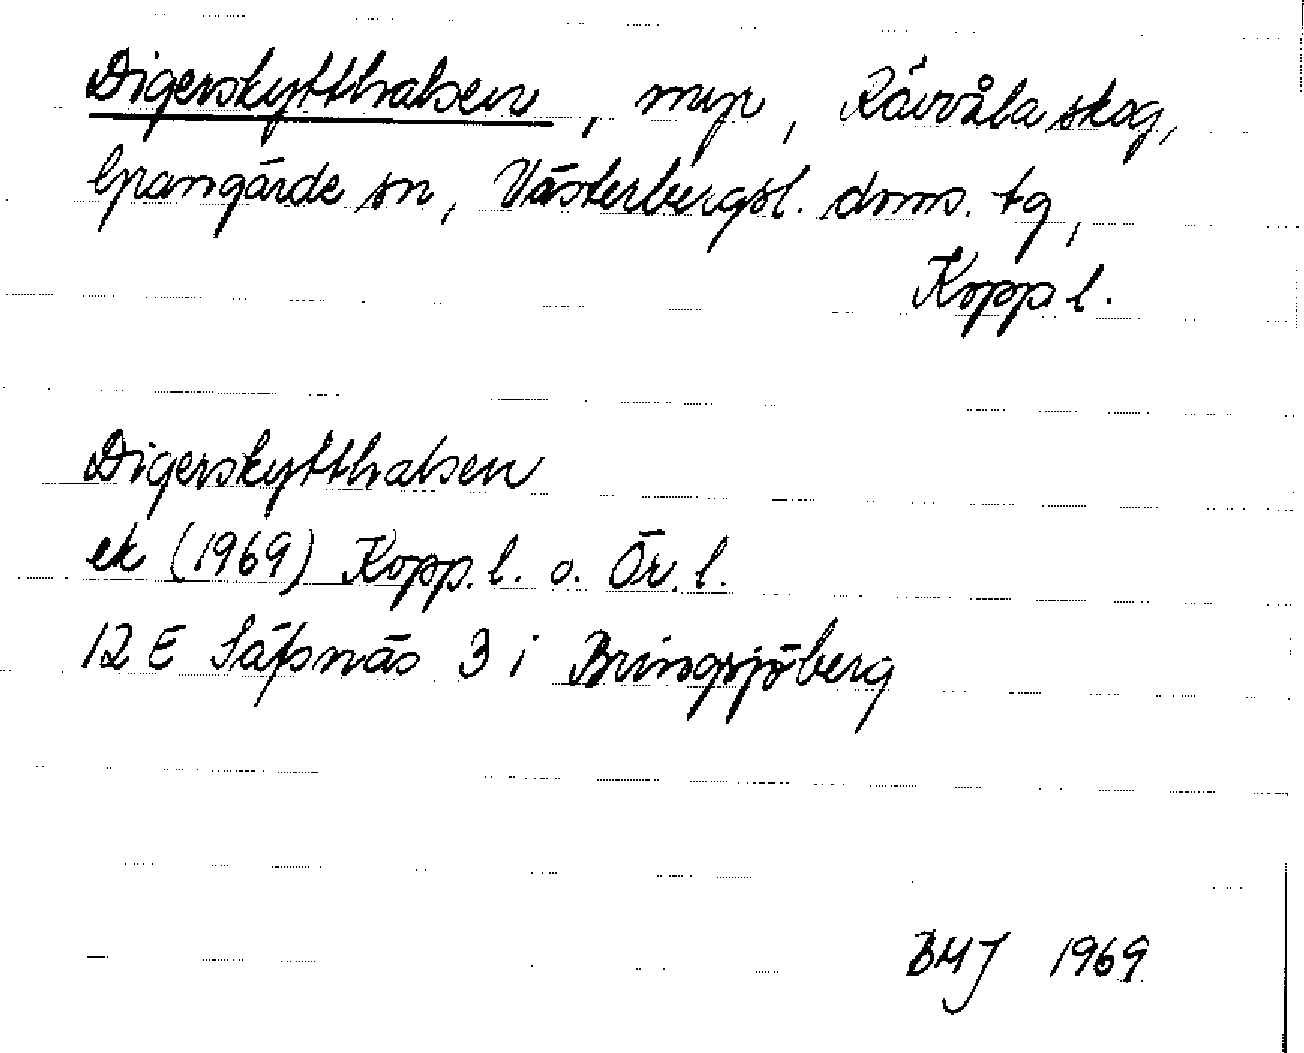 Digerskytthalsen, myr, Rävvåla skog,
Grangärde sn, Västerbergsl. doms. tg,
Kopp.l.
Digerskytthalsen
ek (1969) Kopp. l. o. Ör. l.
12 E Säfsnäs 3 i Bringsjöberg
BMJ 1969